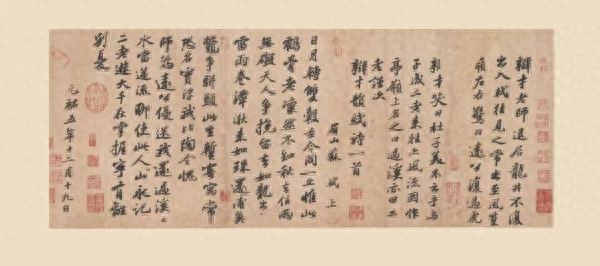 辯才老師退居龍井不復
出入軾往見之常出至風篁
嶺左右驚曰遠公復過虎
溪矣
辯才笑曰杜子美不云乎與
子成二老來往亦風流因作
亭嶺上名之曰過溪亦曰二
老謹次
辯才韻賦詩一首
眉山蘇軾上
日月轉雙轂古今同一丘惟此
鶴骨老凜然不知秋去住兩
無礙天人爭挽留去如龍出山
雷雨卷潭湫來如珠還浦魚
鱉爭駢頭此生暫寄寓常
恐名實浮我比陶令愧
師為遠公優送我還過溪溪
水當逆流聊使此人山永記
二老遊大千在掌握寧有離
別憂
元祐五年十二月十九日